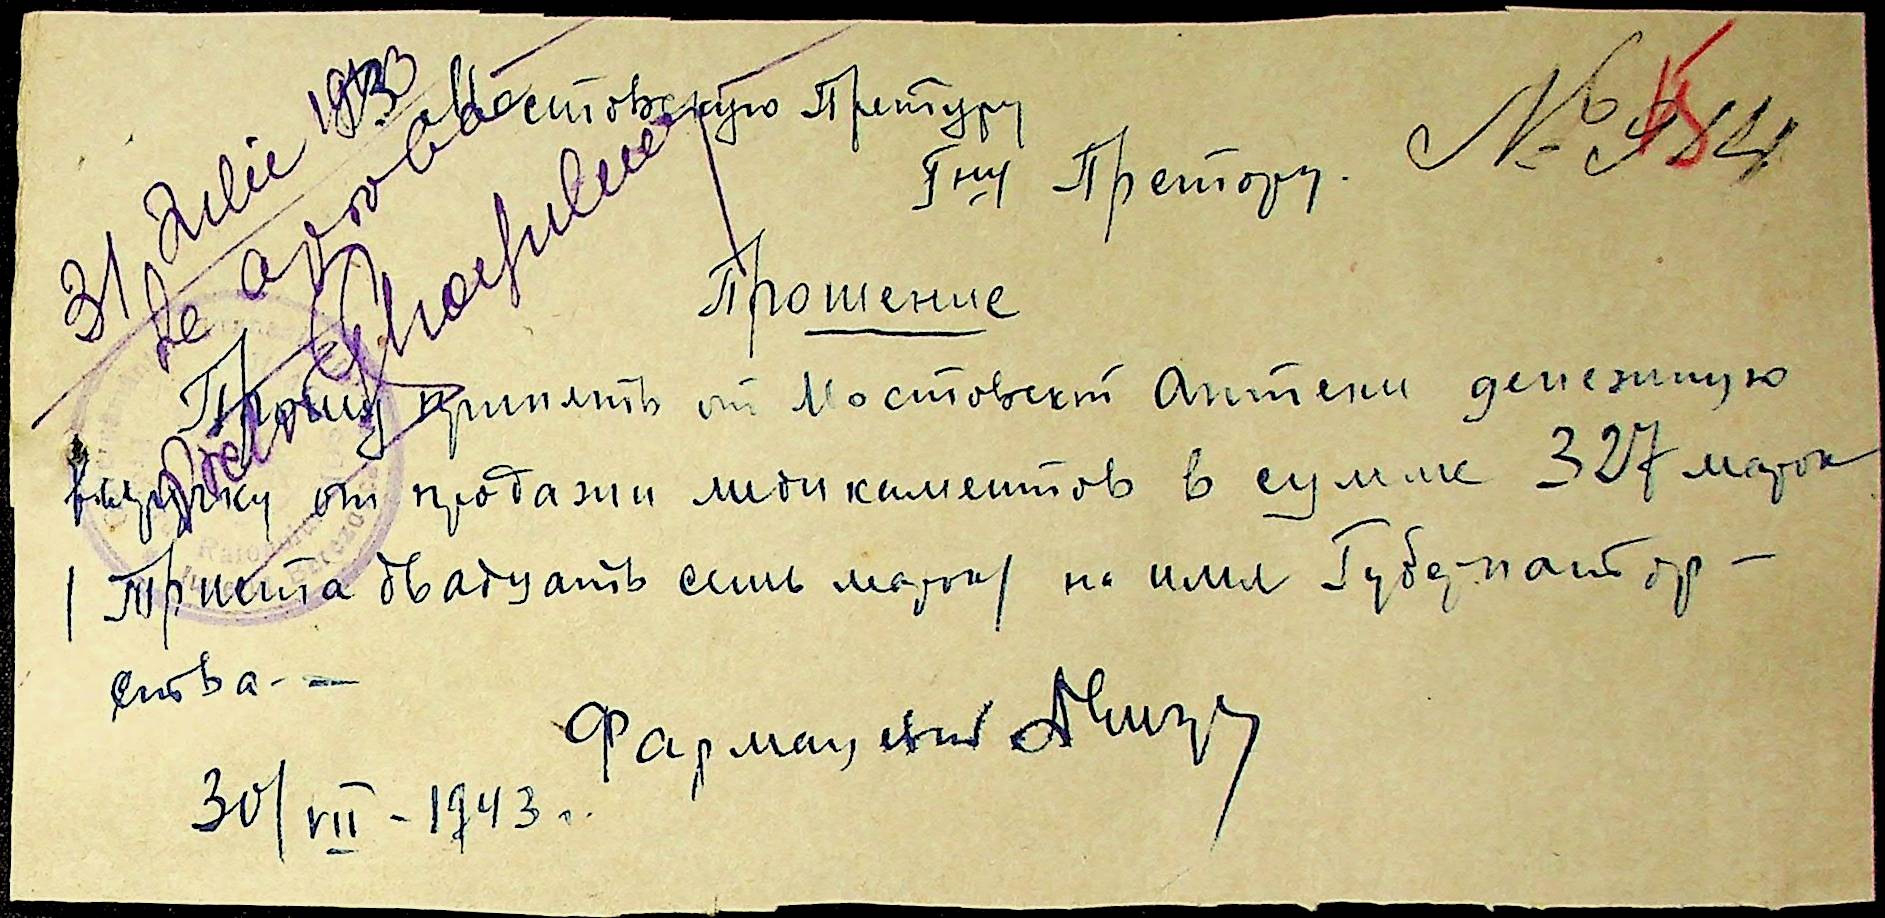 31 Iulie 1943
Se aprobă
в Мостовскую Претуру
Гну Претору.
№
Прошение
Прошу принять от Мостовской Аптеки денежную
выручку от продажи медикаментов в сумме 327 марок
/Триста двадцать семь марок/ на имя Губернатор-
ства.—
Фармацевт
30/VII-1943 г.